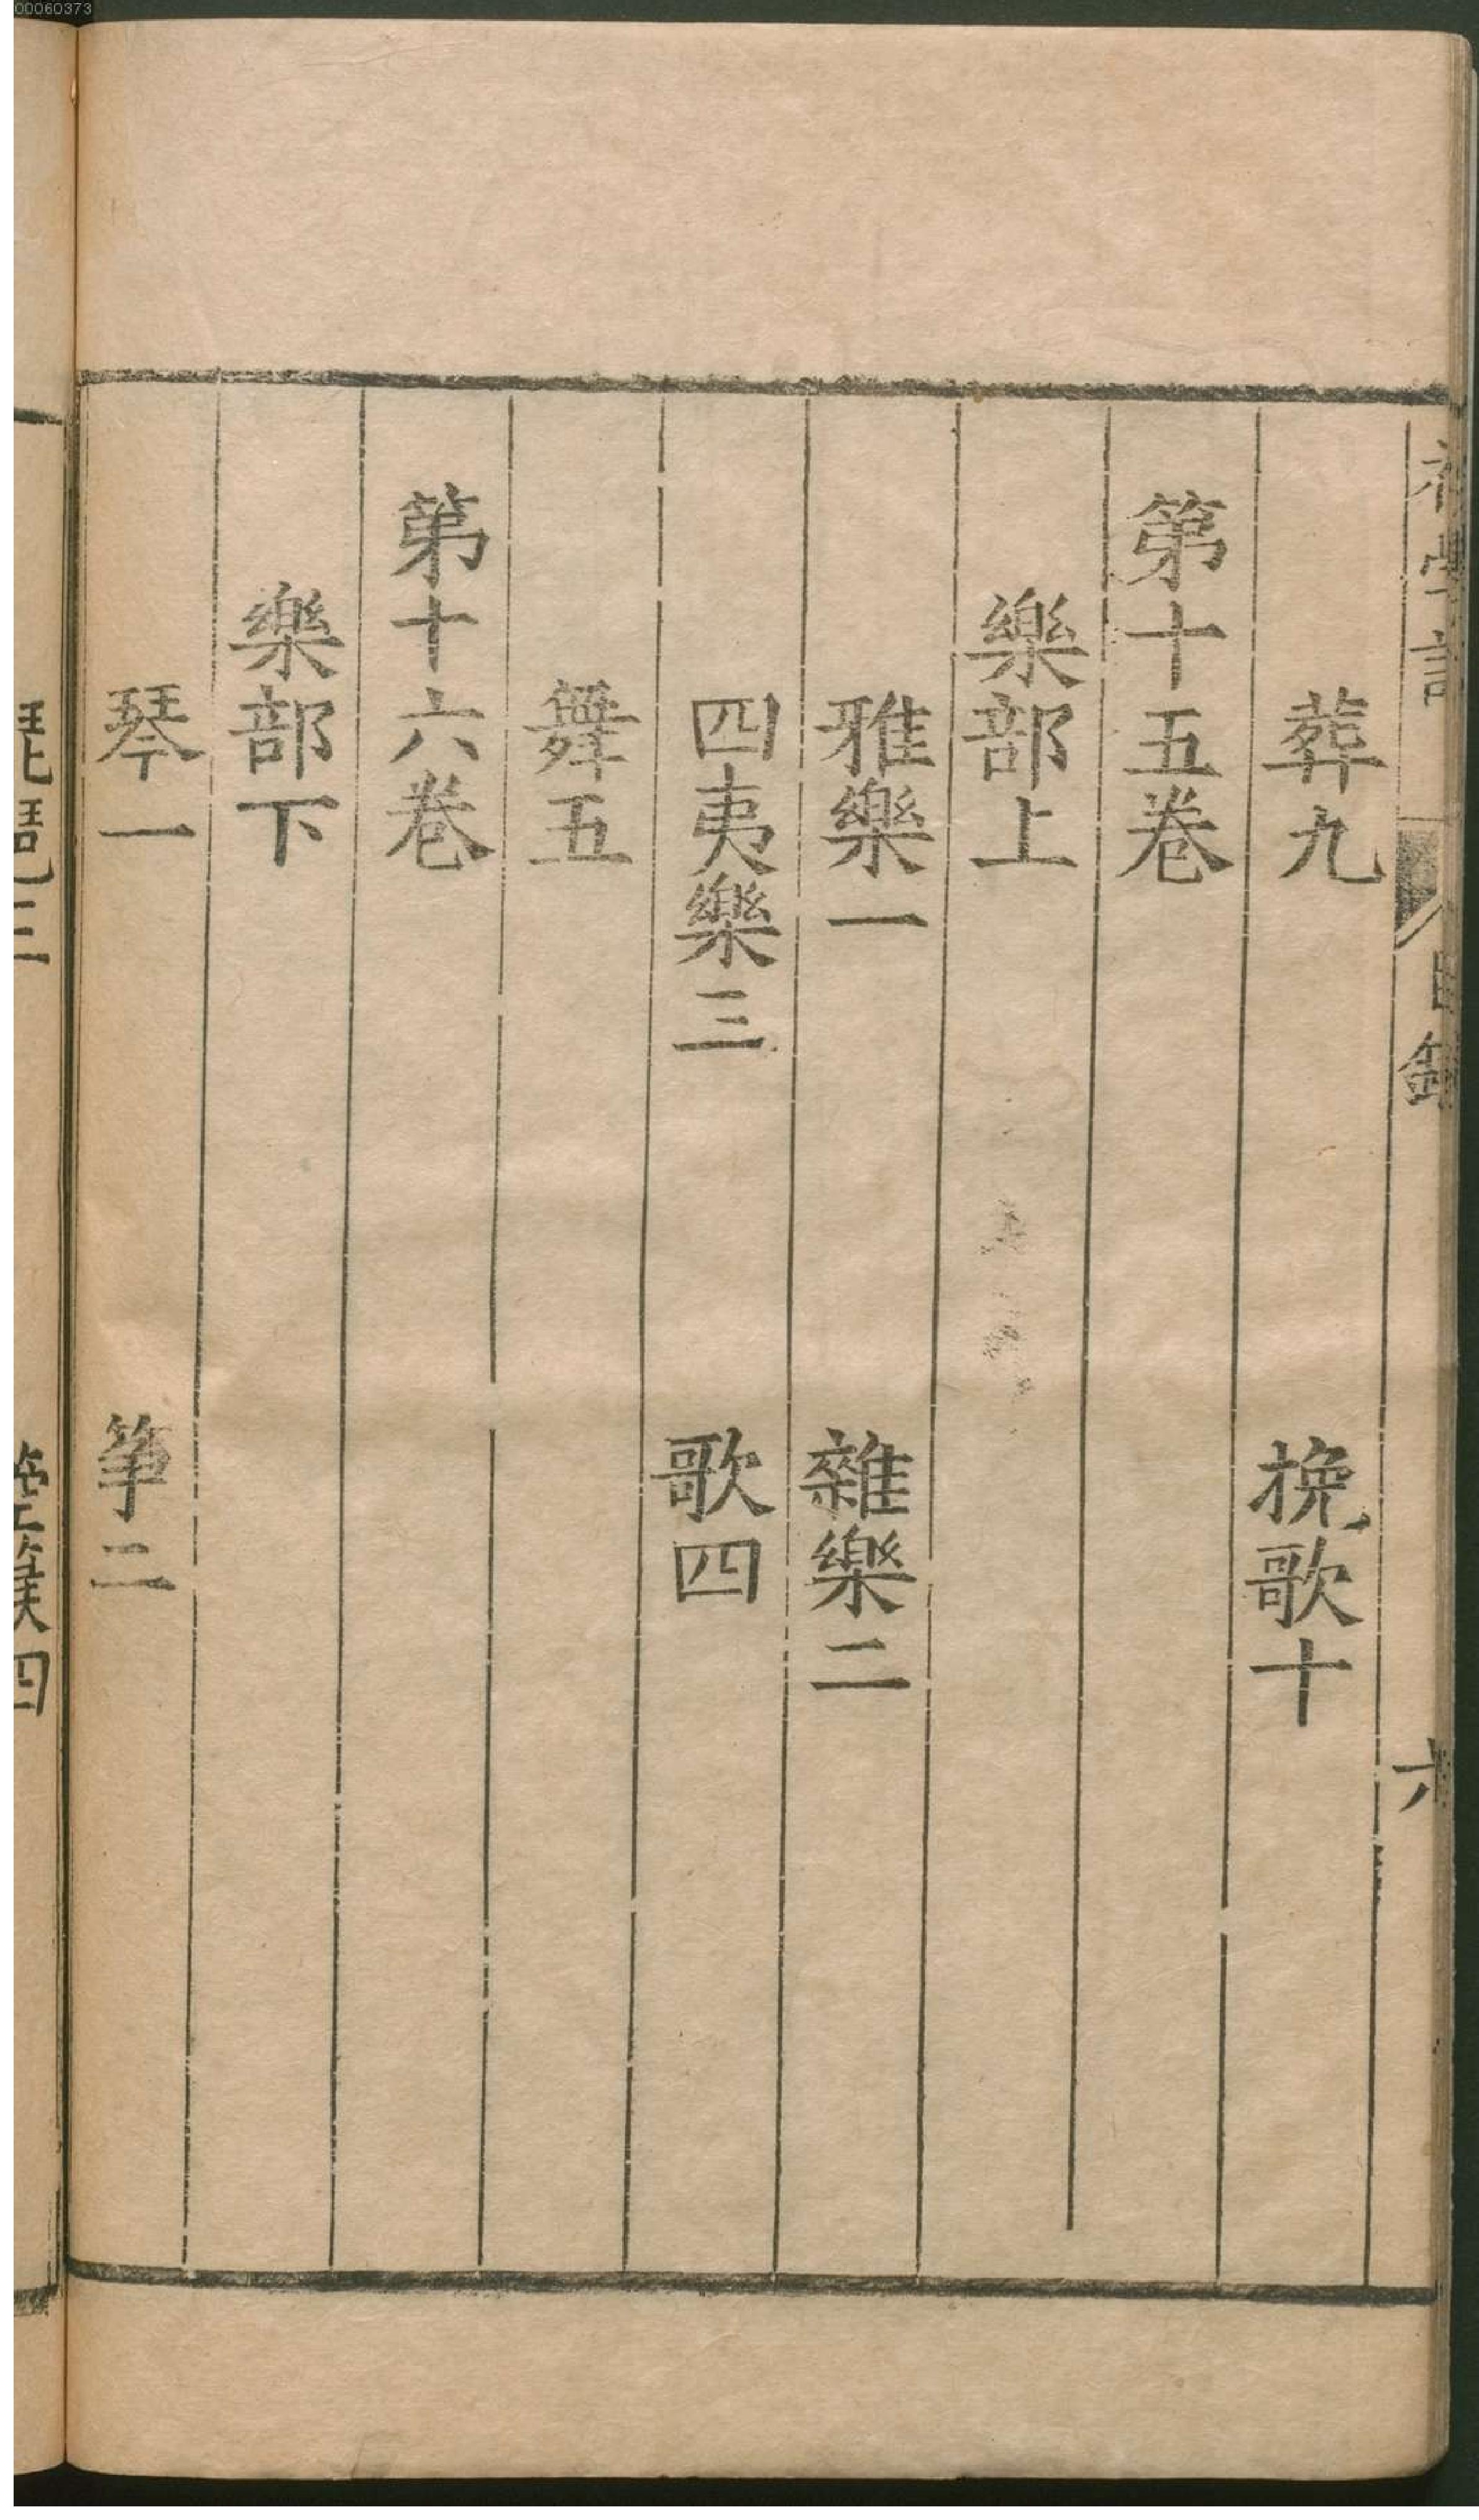 00060373
初學記 目錄 六
葬九 挽歌十
第十五卷
樂部上
雅樂一 雜樂二
四夷樂三 歌四
舞五
第十六卷
樂部下
琴一 筝二
琵琶三 箜篌四